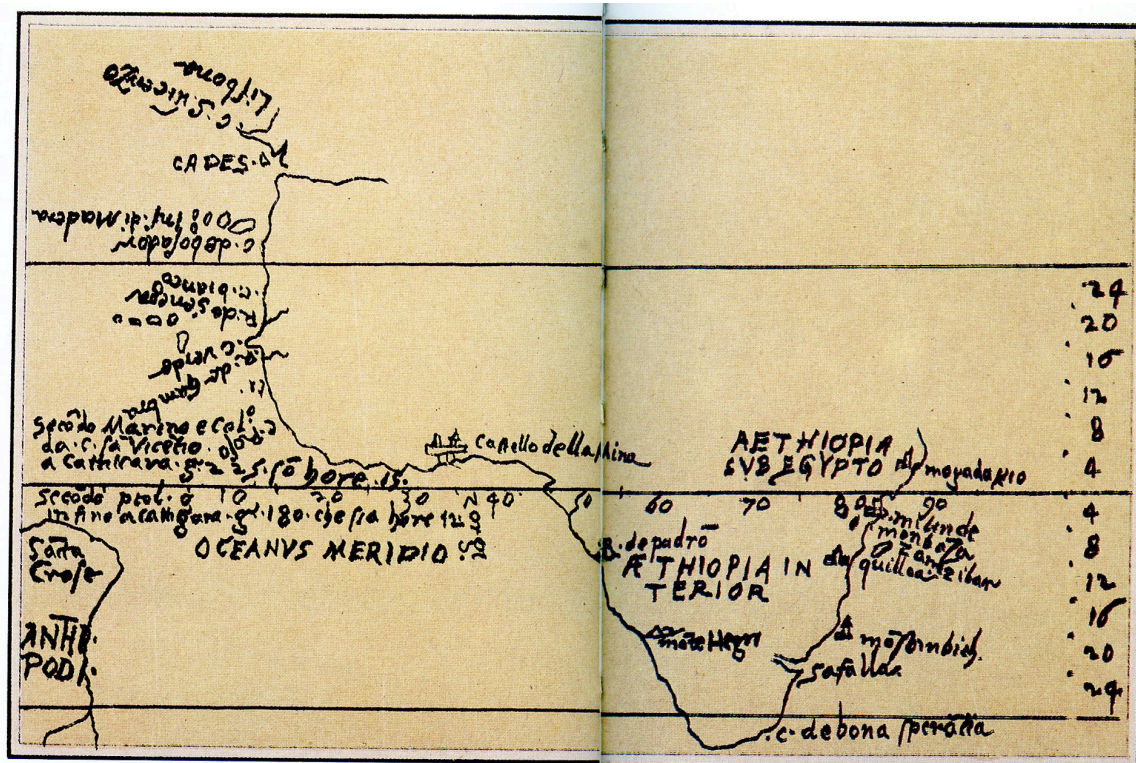 Lisbona
c. s. vicenzo
CADES.
Insu. di Madera
c. de boiador
c. bianco
R. de senega
c. verde
R. de gambra
Secōdo Marino e Col.
da. c. sā Vicētio.
a Cattigara. g. 225. sō hore. 15.
Castello della Mina
AETHIOPIA
SVB EGYPTO
mogadaxio
24
20
16
12
8
4
10 20 30 40 50 60 70 80 90
secōdo ptol.
infino a catigara. g. 180. che sia hore 12
OCEANVS MERIDIO
Sāta
Crose
ANTI
PODI.
R. de padrō
ÆTHIOPIA IN
TERIOR
milinde
monbaza
zanziban
quilloa
mōte Negro
mōsanbich.
Safalla.
c. de bona sperātia
4
8
12
16
20
24